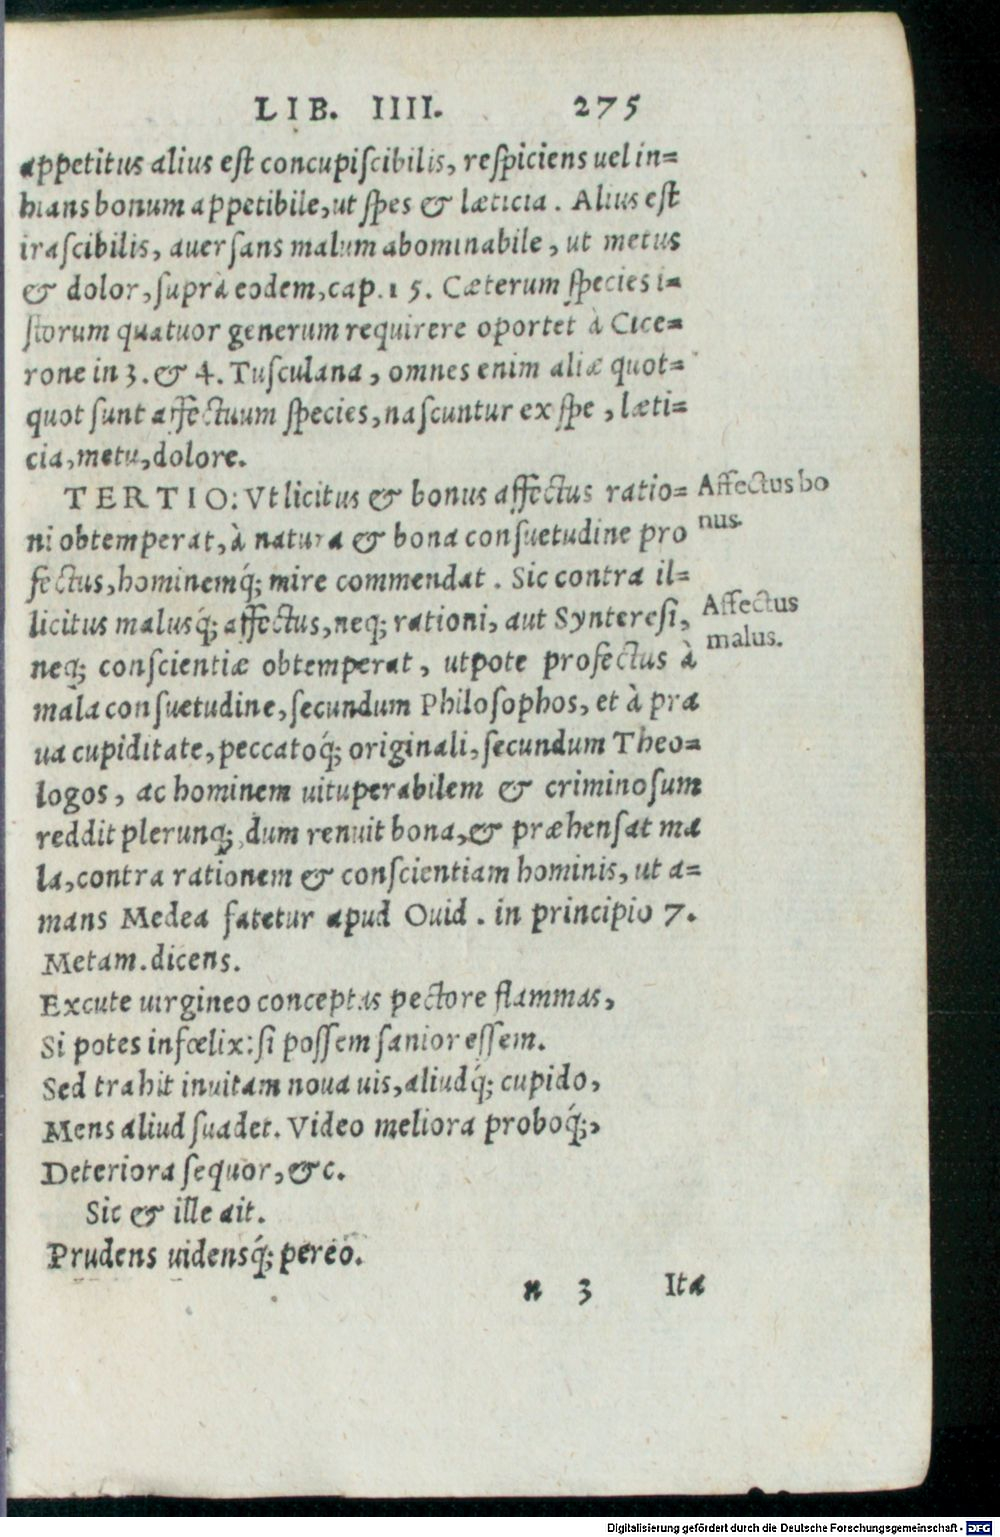 LIB. IIII. 275
appetitus alius eſt concupiſcibilis, reſpiciens uel in=
hians bonum appetibile, ut ſpes & læticia. Alius eſt
iraſcibilis, auerſans malum abominabile, ut metus
& dolor, ſuprà eodem, cap. 15. Cæterum ſpecies i=
ſtorum quatuor generum requirere oportet à Cice=
rone in 3. & 4. Tuſculana, omnes enim aliæ quot=
quot ſunt affectuum ſpecies, naſcuntur ex ſpe, læti=
cia, metu, dolore.
TERTIO: Vt licitus & bonus affectus ratio= Affectus bo
ni obtemperat, à natura & bona conſuetudine pro nus.
fectus, hominemq́; mire commendat. Sic contra il=
licitus malusq́; affectus, neq; rationi, aut Syntereſi, Affectus
neq; conſcientiæ obtemperat, utpote profectus à malus.
mala conſuetudine, ſecundum Philoſophos, et à pra
ua cupiditate, peccatoq́; originali, ſecundum Theo=
logos, ac hominem uituperabilem & criminoſum
reddit plerunq;, dum renuit bona, & præhenſat ma
la, contra rationem & conſcientiam hominis, ut a=
mans Medea fatetur apud Ouid. in principio 7.
Metam. dicens.
Excute uirgineo conceptas pectore flammas,
Si potes infœlix: ſi poſſem ſanior eſſem.
Sed trahit inuitam noua uis, aliudq́; cupido,
Mens aliud ſuadet. Video meliora proboq́;,
Deteriora ſequor, &c.
Sic & ille ait.
Prudens uidensq́; pereo.
n 3 Ita
Digitalisierung gefördert durch die Deutsche Forschungsgemeinschaft - DFG